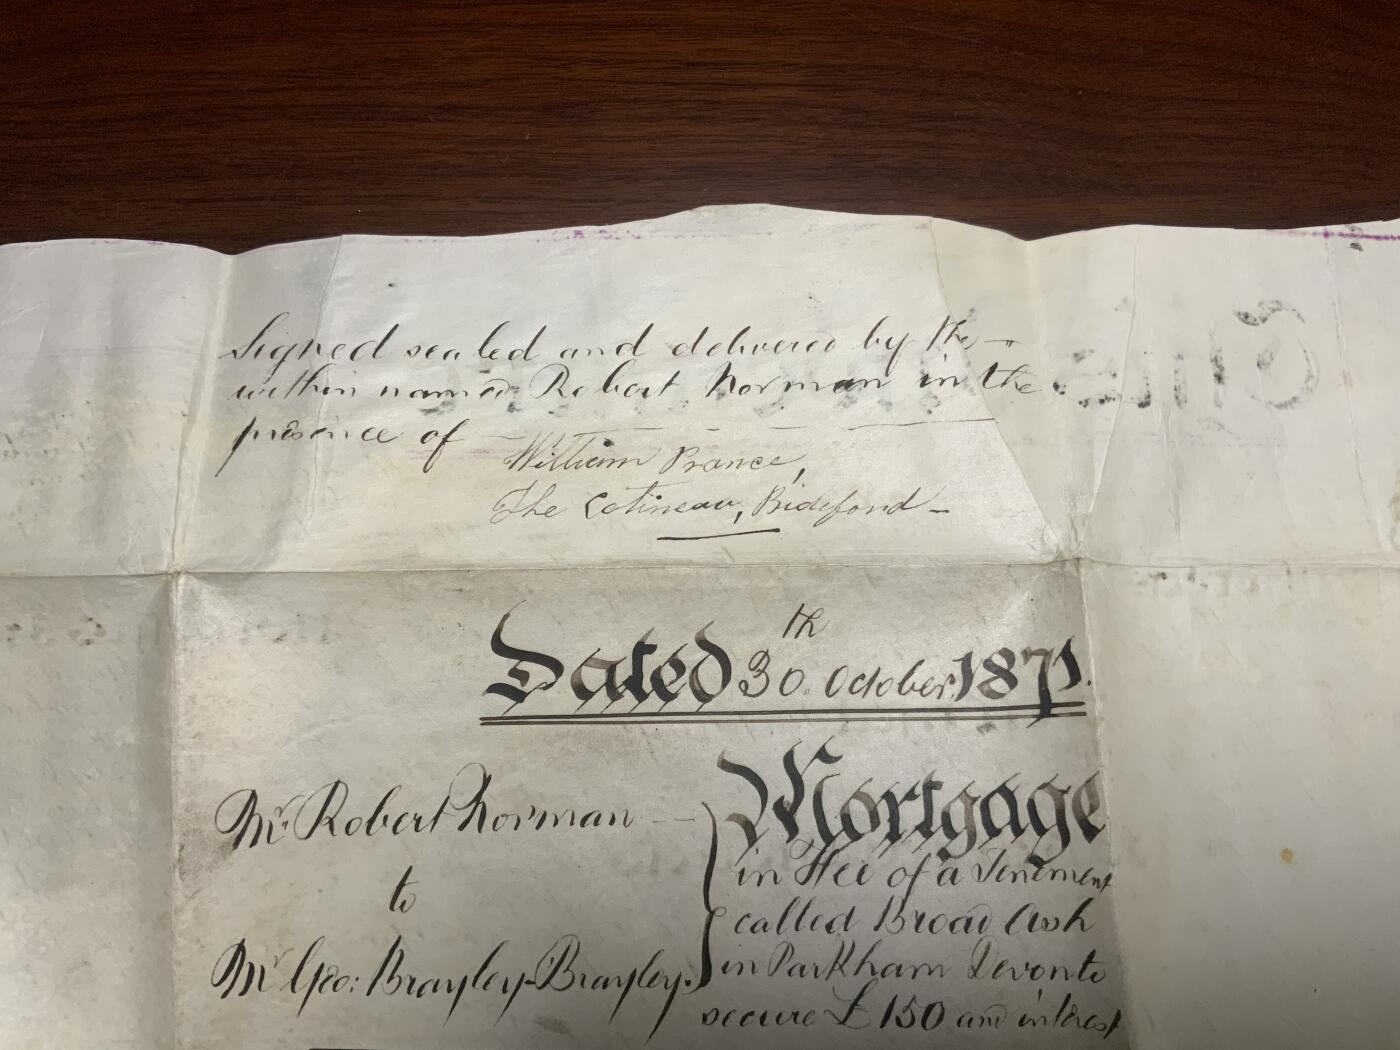 Signed sealed and delivered by the
within named Robert Norman in the
presence of
William Prance,
The Bideford
Dated 30th October 1871.
Mr Robert Norman
to
Mr Geo: Brayley Brayley.
Mortgage
in Fee of a Tenement
called Broad Ash
in Parkham Devon to
secure £150 and interest